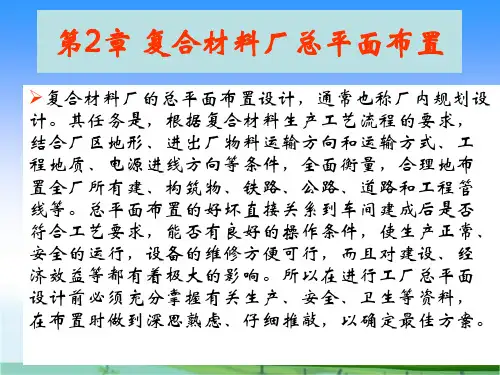 第2章 复合材料厂总平面布置
➢复合材料厂的总平面布置设计，通常也称厂内规划设
计。其任务是，根据复合材料生产工艺流程的要求，
结合厂区地形、进出厂物料运输方向和运输方式、工
程地质、电源进线方向等条件，全面衡量，合理地布
置全厂所有建、构筑物、铁路、公路、道路和工程管
线等。总平面布置的好坏直接关系到车间建成后是否
符合工艺要求，能否有良好的操作条件，使生产正常、
安全的运行，设备的维修方便可行，而且对建设、经
济效益等都有着极大的影响。所以在进行工厂总平面
设计前必须充分掌握有关生产、安全、卫生等资料，
在布置时做到深思熟虑、仔细推敲，以确定最佳方案。